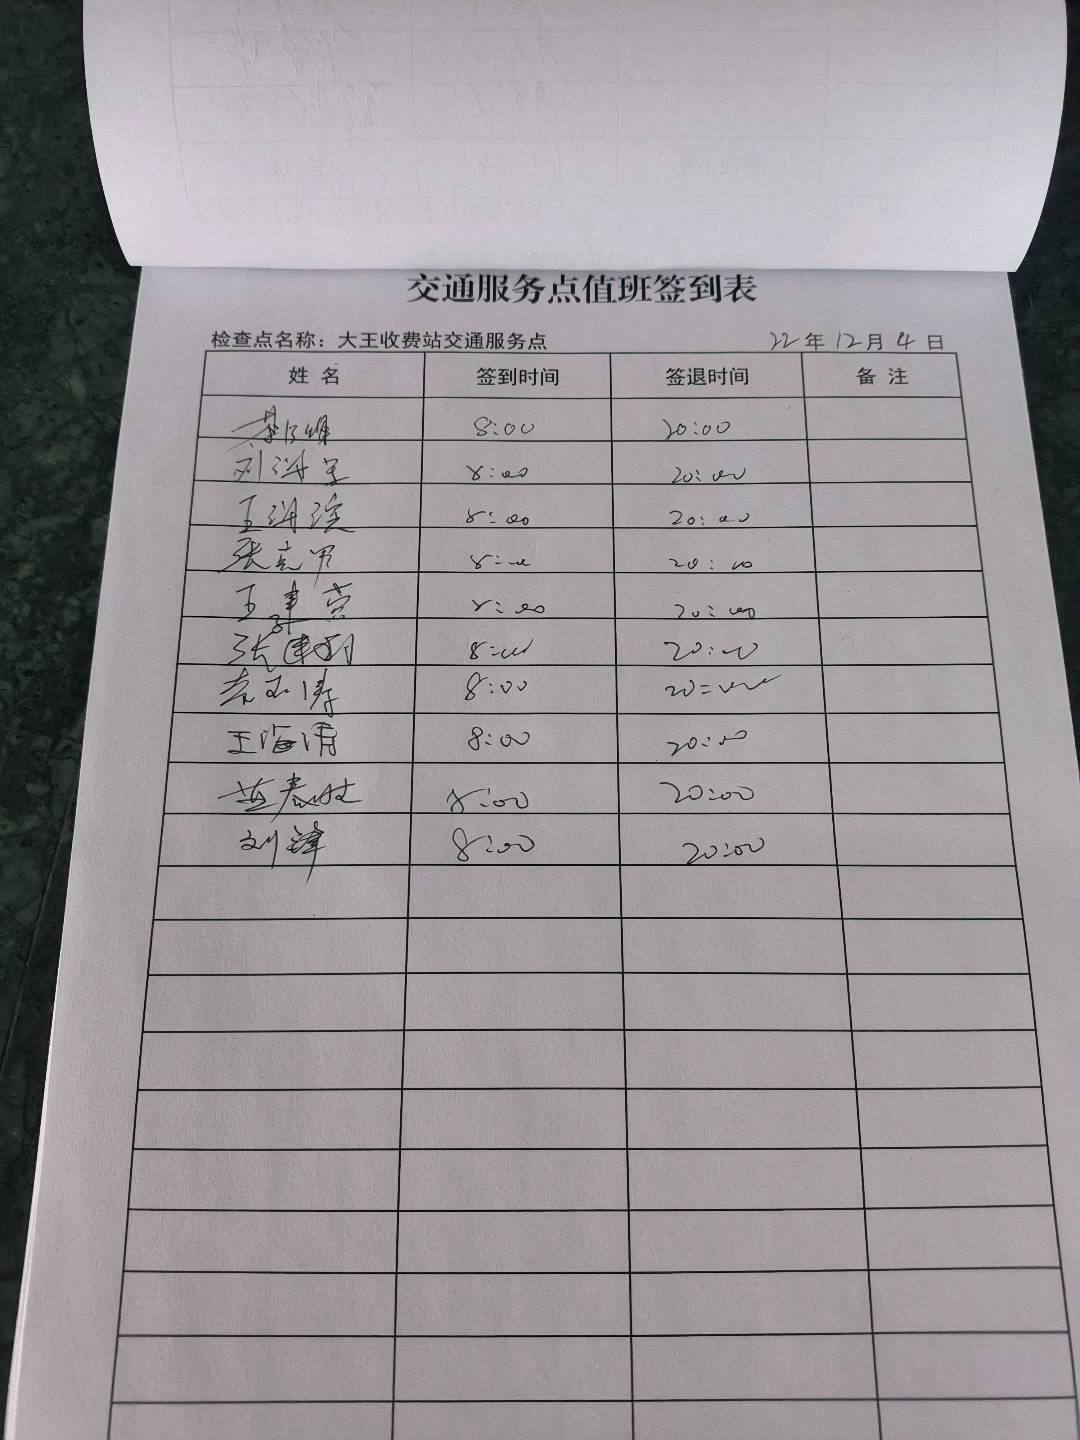 交通服务点值班签到表
检查点名称：大王收费站交通服务点 22年12月4日
姓 名 签到时间 签退时间 备 注
8:00 20:00
8:00 20:00
8:00 20:00
张亮 8:00 20:00
王建营 8:00 20:00
张建 8:00 20:00
8:00 20:00
王海清 8:00 20:00
8:00 20:00
刘锋 8:00 20:00